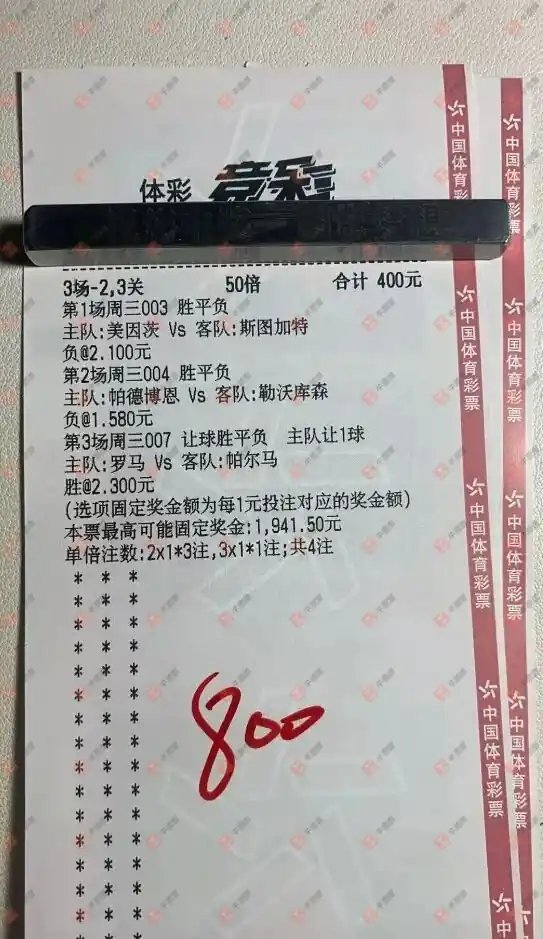 体彩 竞彩
3场-2,3关 50倍 合计 400元
第1场周三003 胜平负
主队:美因茨 Vs 客队:斯图加特
负@2.100元
第2场周三004 胜平负
主队:帕德博恩 Vs 客队:勒沃库森
负@1.580元
第3场周三007 让球胜平负 主队让1球
主队:罗马 Vs 客队:帕尔马
胜@2.300元
(选项固定奖金额为每1元投注对应的奖金额)
本票最高可能固定奖金:1,941.50元
单倍注数:2x1*3注,3x1*1注;共4注
800
中国体育彩票
中国体育彩票
中国体育彩票
中国体育彩票
中国体育彩票
中国体育彩票
中国体育彩票
中国体育彩票
中
中